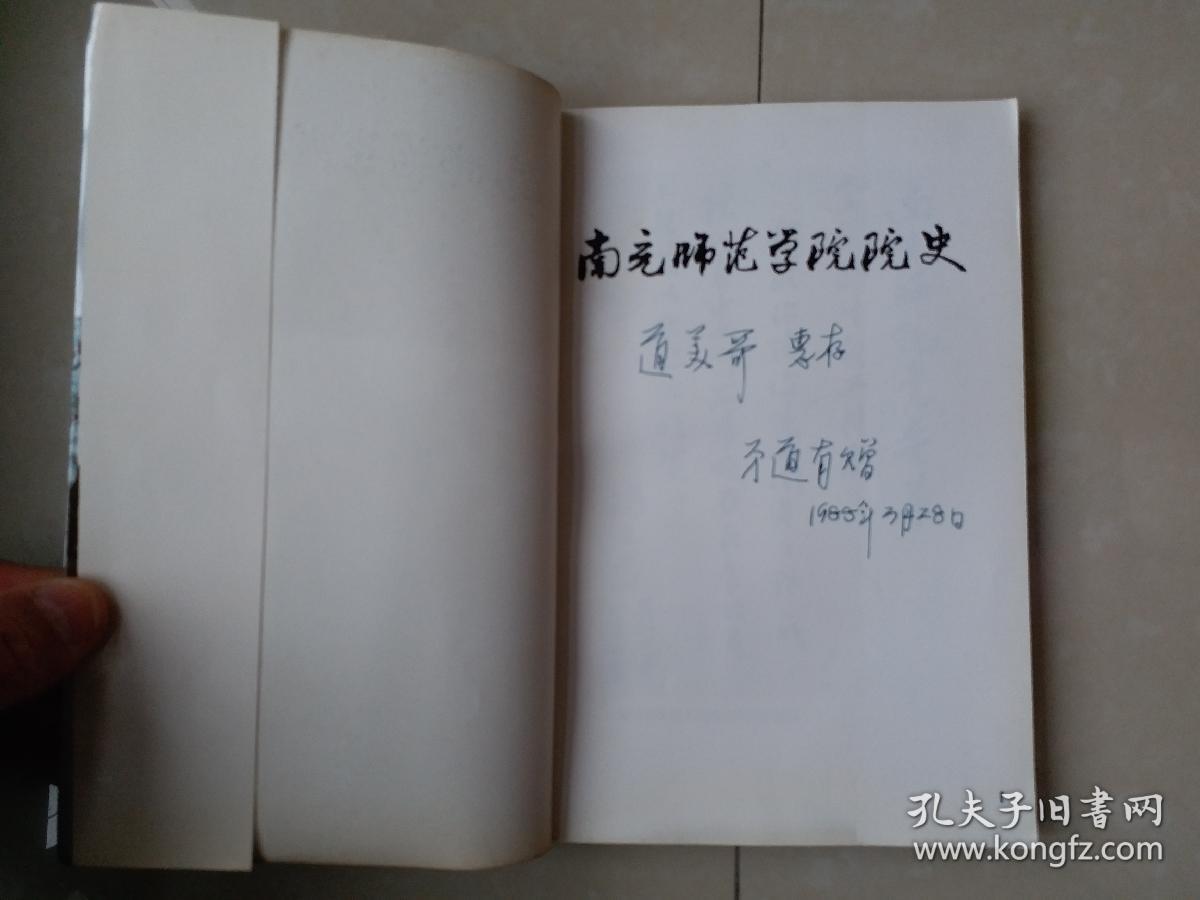 南充师范学院院史
道美哥 惠存
道有赠
1988年3月28日
孔夫子旧书网
www.kongfz.com